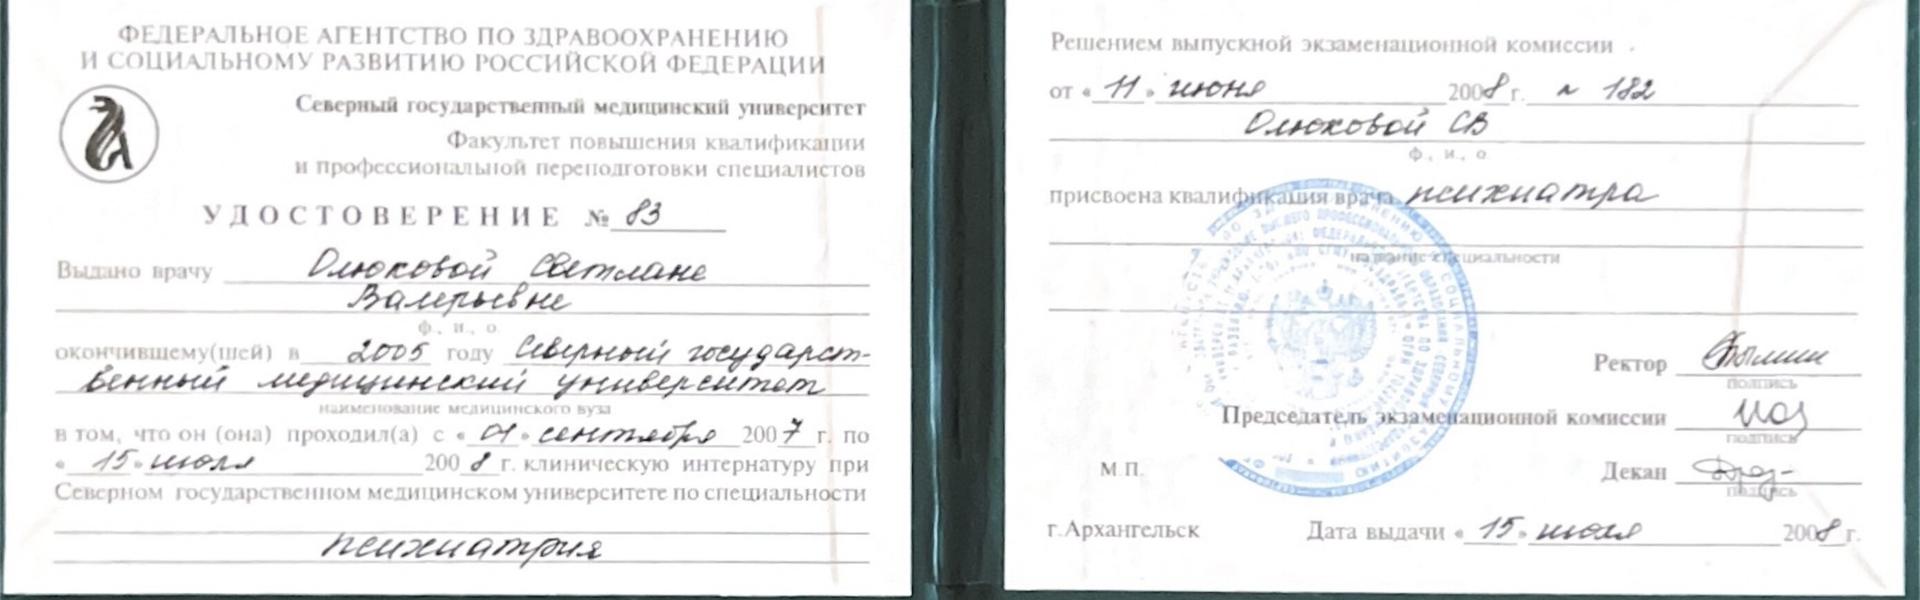 ФЕДЕРАЛЬНОЕ АГЕНТСТВО ПО ЗДРАВООХРАНЕНИЮ
И СОЦИАЛЬНОМУ РАЗВИТИЮ РОССИЙСКОЙ ФЕДЕРАЦИИ
Северный государственный медицинский университет
Факультет повышения квалификации
и профессиональной переподготовки специалистов
УДОСТОВЕРЕНИЕ № 83
Выдано врачу Олюковой Светлане
Валерьевне
ф., и., о.
окончившему(шей) в 2005 году Северный государст-
венный медицинский университет
наименование медицинского вуза
в том, что он (она) проходил(а) с «01» сентября 2007 г. по
«15» июля 2008 г. клиническую интернатуру при
Северном государственном медицинском университете по специальности
психиатрия
Решением выпускной экзаменационной комиссии
от «11» июня 2008 г. № 182
Олюковой СВ
ф., и., о.
присвоена квалификация врача психиатра
название специальности
Ректор
подпись
Председатель экзаменационной комиссии
подпись
М.П. Декан
подпись
г.Архангельск Дата выдачи «15» июля 2008 г.